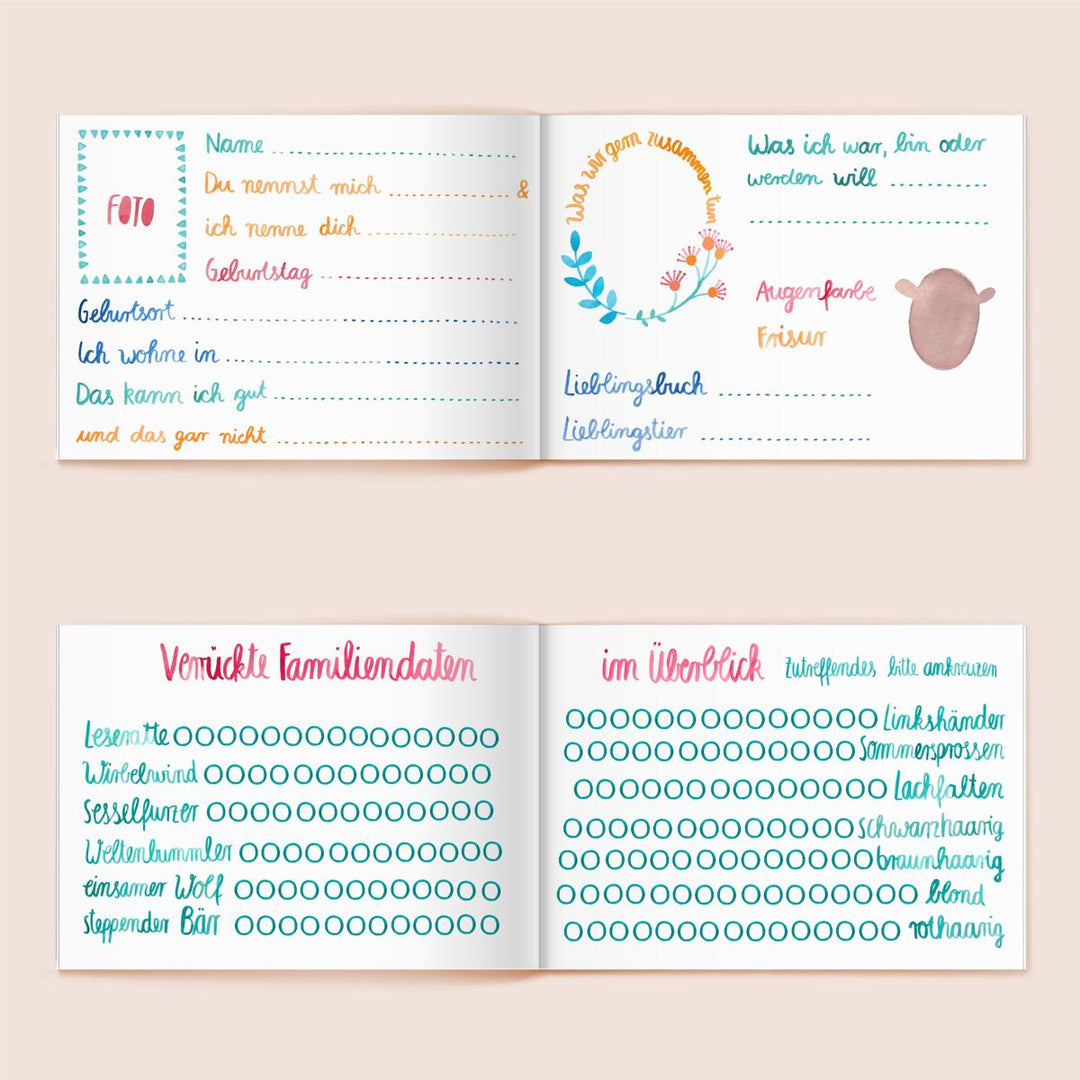 FOTO
Name
Du nennst mich &
ich nenne dich
Geburtstag
Geburtsort
Ich wohne in
Das kann ich gut
und das gar nicht
Was wir gern zusammen tun
Was ich war, bin oder
werden will
Augenfarbe
Frisur
Lieblingsbuch
Lieblingstier
Verrückte Familiendaten
Leseratte
Wirbelwind
Sesselfurzer
Weltenbummler
einsamer Wolf
steppender Bär
im Überblick Zutreffendes bitte ankreuzen
Linkshänder
Sommersprossen
Lachfalten
schwarzhaarig
braunhaarig
blond
rothaarig